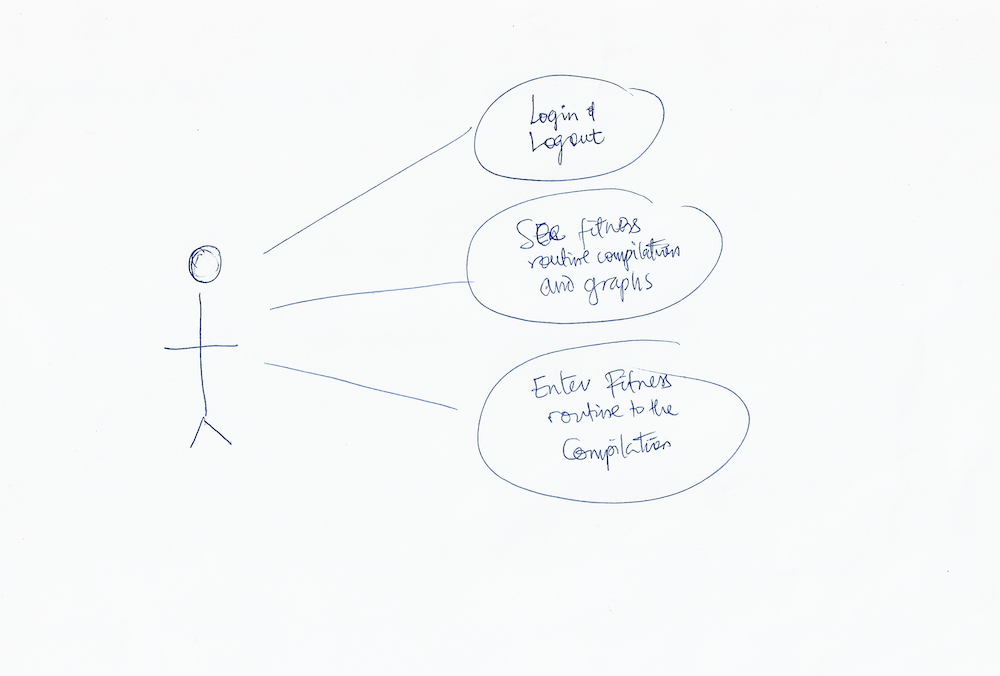 Login &
Logout
See fitness
routine compilation
and graphs
Enter Fitness
routine to the
Compilation